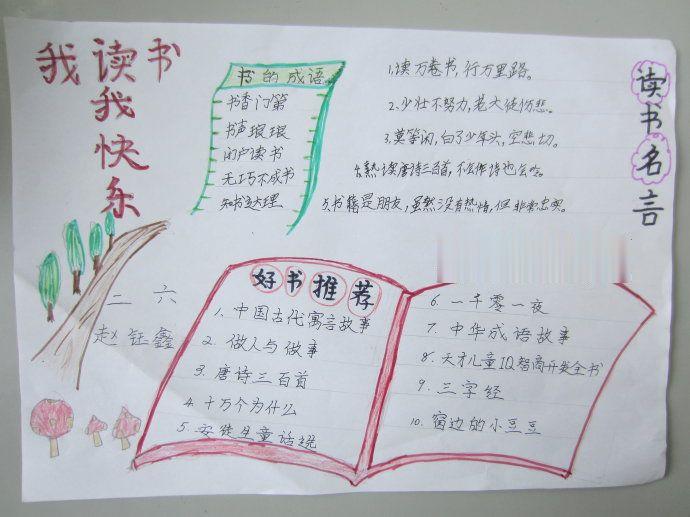 我读书
我快乐
书的成语
书香门第
书声琅琅
闭户读书
无巧不成书
知书达理
1.读万卷书，行万里路。
2.少壮不努力，老大徒伤悲。
3.莫等闲，白了少年头，空悲切。
4.熟读唐诗三百首，不会作诗也会吟。
5.书籍是朋友，虽然没有热情，但非常忠实。
读书名言
二六
赵钰鑫
好书推荐
1、中国古代寓言故事
2、做人与做事
3、唐诗三百首
4、十万个为什么
5、安徒生童话选
6、一千零一夜
7、中华成语故事
8、天才儿童IQ智商开发全书
9、三字经
10、窗边的小豆豆